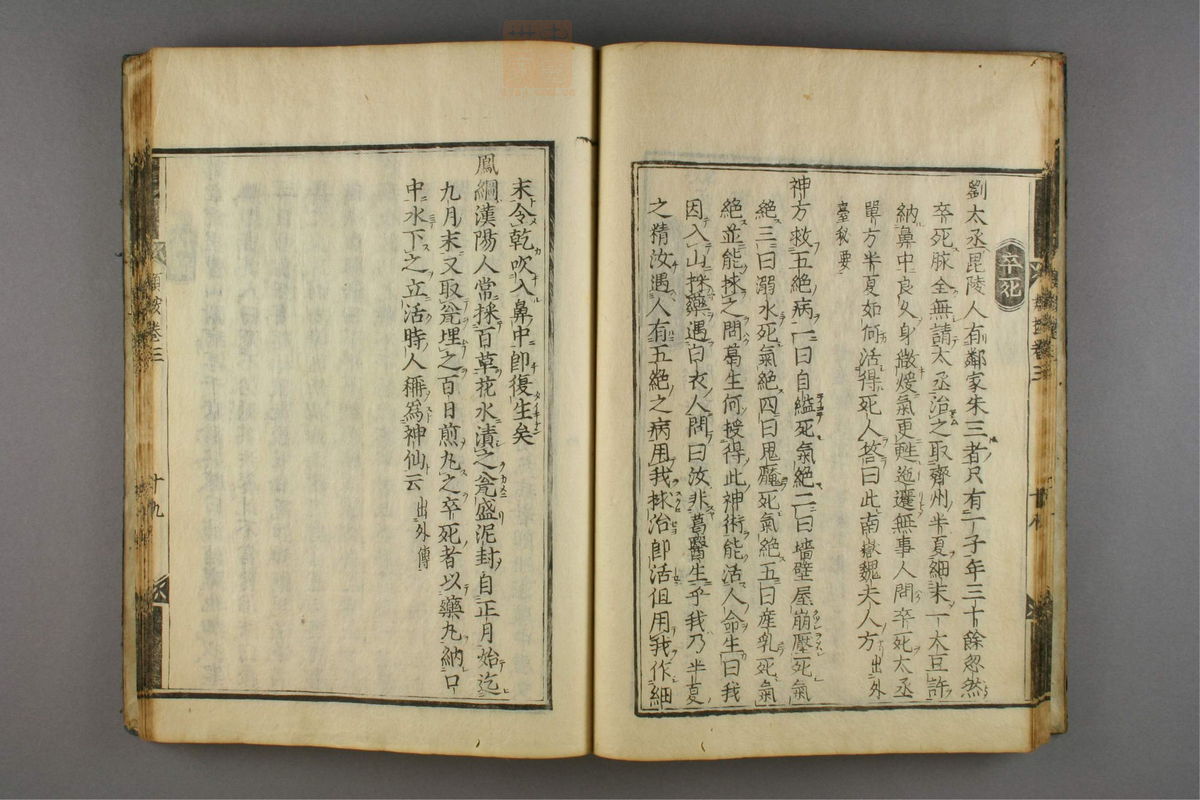 卒死
劉太丞毘陵人有鄰家朱三者只有一子年三十餘忽然
卒死脉全無請太丞治之取齊州半夏細末一大豆許
納鼻中良久身微煖氣更甦迤邐無事人問卒死太丞
單方半夏如何活得死人答曰此南嶽魏夫人方出外
臺秘要
神方救五絶病一曰自縊死氣絶二曰墻壁屋崩壓死氣
絶三曰溺水死氣絶四曰鬼魘死氣絶五曰産乳死氣
絶並能捄之問葛生何授得此神術能活人命生曰我
因入山採藥遇白衣人問曰汝非葛醫生乎我乃半夏
之精汝遇人有五絶之病用我捄治即活但用我作細
末令乾吹入鼻中即復生矣
鳳綱漢陽人常採百草花水漬之瓮盛泥封自正月始迄
九月末又取瓮埋之百日煎丸之卒死者以藥丸納口
中水下之立活時人稱為神仙云出外傳
類按卷三
十九